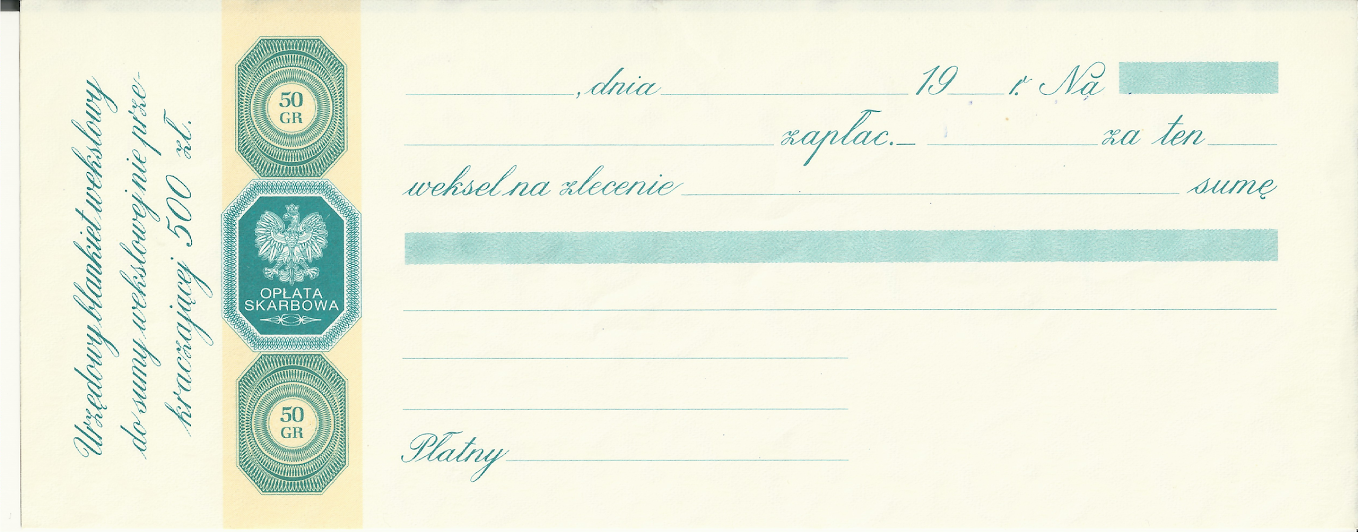 Urzędowy blankiet wekslowy
do sumy wekslowej nie prze-
kraczającej 500 zł.
50
GR
OPŁATA
SKARBOWA
50
GR
, dnia 19 r. Ną
zapłac. za ten
weksel na zlecenie sumę
Płatny